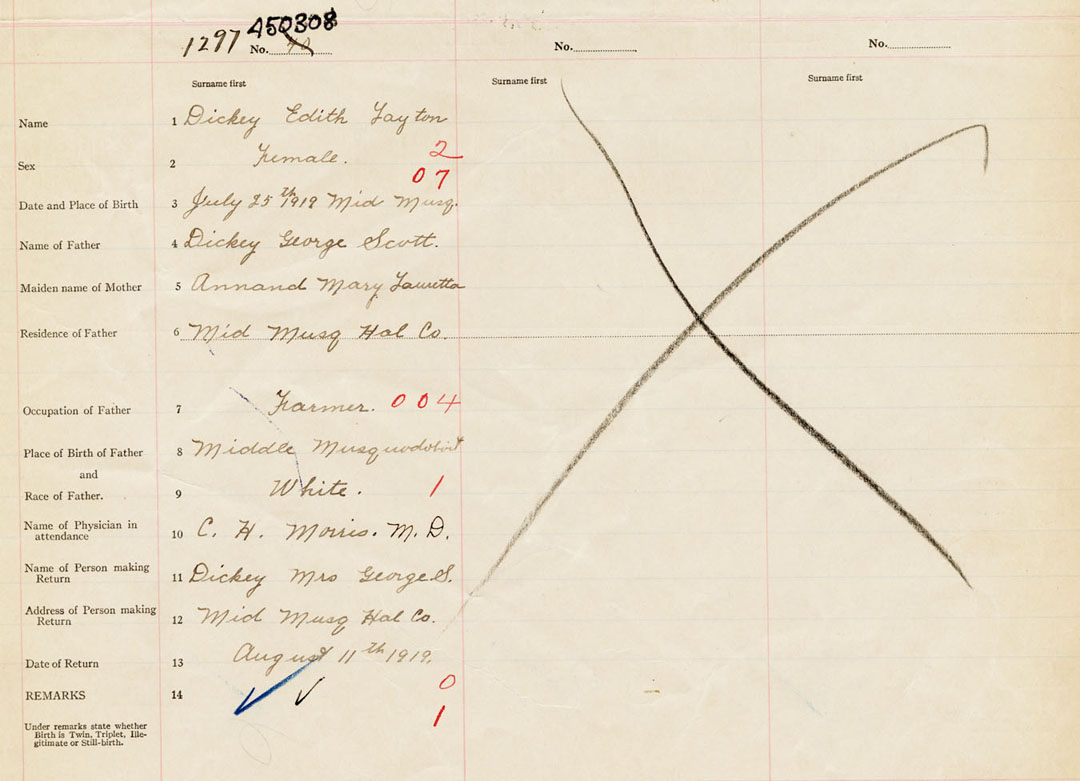 1297 450308
No. 40 No. No.
Surname first Surname first Surname first
Name 1 Dickey Edith Layton
Sex 2 Female. 2
07
Date and Place of Birth 3 July 25th 1919 Mid Musq.
Name of Father 4 Dickey George Scott.
Maiden name of Mother 5 Annand Mary Lauretta
Residence of Father 6 Mid Musq Hal Co.
Occupation of Father 7 Farmer. 004
Place of Birth of Father 8 Middle Musquodoboit
and
Race of Father. 9 White. 1
Name of Physician in
attendance 10 C. H. Morris. M. D.
Name of Person making
Return 11 Dickey Mrs George S.
Address of Person making
Return 12 Mid Musq Hal Co.
Date of Return 13 August 11th 1919.
REMARKS 14 0
1
Under remarks state whether
Birth is Twin, Triplet, Ille-
gitimate or Still-birth.